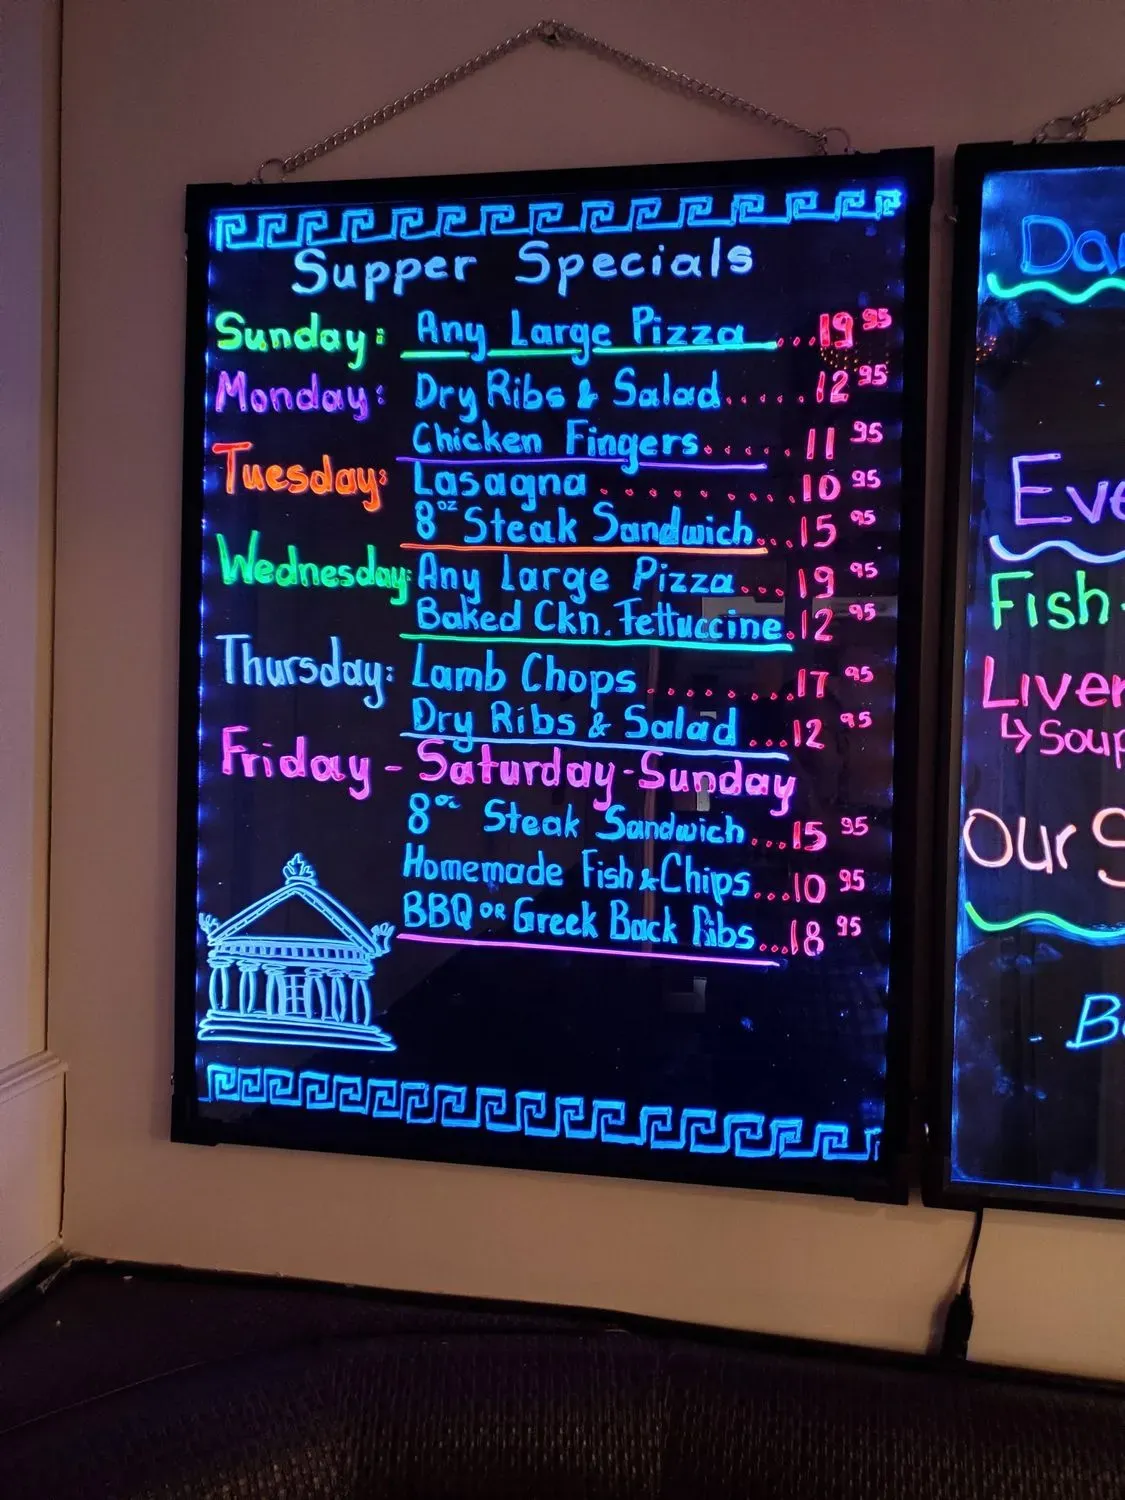 Supper Specials
Sunday: Any Large Pizza...19 95
Monday: Dry Ribs & Salad.....12 95
Chicken Fingers.....11 95
Tuesday: Lasagna.........10 95
8oz Steak Sandwich...15 95
Wednesday: Any Large Pizza...19 95
Baked Ckn. Fettuccine.12 95
Thursday: Lamb Chops........17 95
Dry Ribs & Salad...12 95
Friday - Saturday - Sunday
8oz Steak Sandwich...15 95
Homemade Fish & Chips...10 95
BBQ OR Greek Back Ribs...18 95
Fish
Liver
↳ Soup
Our